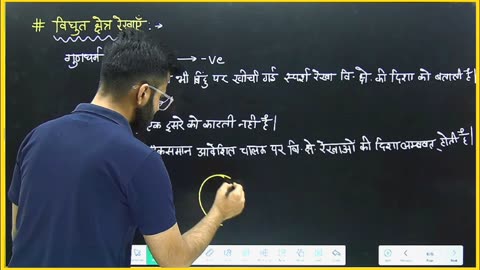 # विद्युत क्षेत्र रेखाएँ :→
गुणधर्म → -ve
भी बिंदु पर खींची गई स्पर्श रेखा वि. क्षे. की दिशा को बताती है|
एक दूसरे को काटती नही है|
समान आवेशित चालक पर वि. क्षे. रेखाओं की दिशा लम्बवत् होती है|